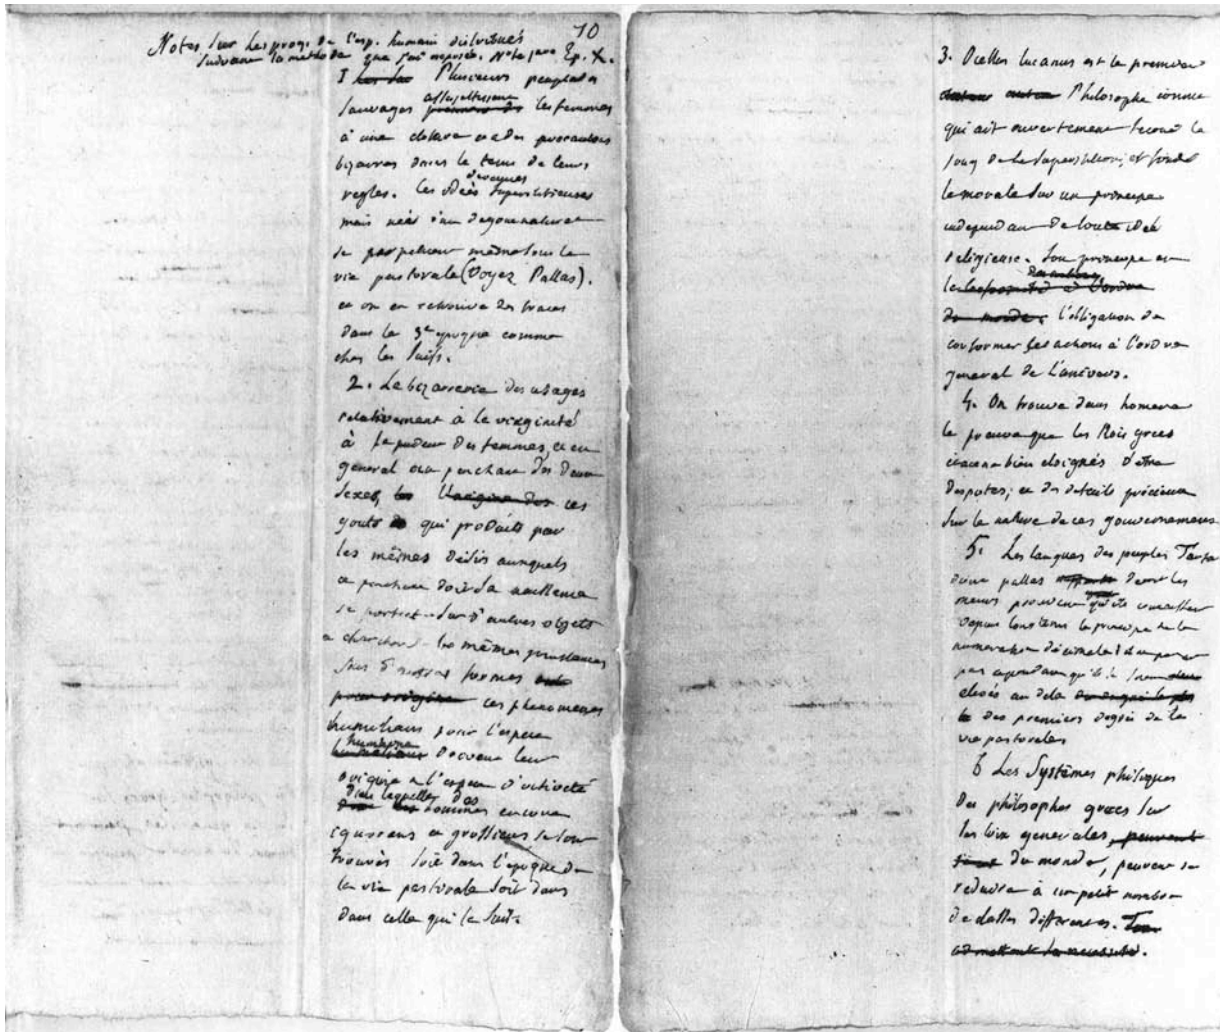 10
Notes sur les prog. de l'esp. humain distribuées
suivant la methode que j'ai
I Plusieurs peuplades
sauvages assujettissent les femmes
à une cloture et a des precautions
bizarres dans le tems de leurs
regles. Ces idées devenues superstitieuses
mais nées d'un degout naturel
se perpetuent même sous la
vie pastorale (Voyez Pallas).
et on en retrouve des traces
dans la 3e epoque comme
chez les Juifs.
2. La bizarrerie des usages
relativement à la virginité
à la pudeur des femmes, et en
general au penchant des deux
sexes, les l'origine des ces
gouts qui produits par
les mêmes desirs auxquels
ce penchant doit sa naissance
se portent sur d'autres objets
a chercher les mêmes jouissances
sous d'autres formes
pour origine ces phenomenes
humilians pour l'espece
humaine doivent leur
origine a l'espece d'oisiveté
dans laquelle des hommes encore
ignorans et grossiers se sont
trouvés soit dans l'epoque de
la vie pastorale soit dans
dans celle qui la suit.
3. Ocellus lucanus est le premier
Philosophe connu
qui ait ouvertement secoué le
joug de la superstition, et fondé
la morale sur un principe
independant de toute idée
religieuse. Son principe est
l'obligation de
conformer ses actions à l'ordre
general de l'univers.
4. On trouve dans homere
la preuve que les Rois grecs
etaient bien eloignés d'etre
despotes; et des details précieux
sur la nature de ces gouvernemens
5. Les langues des peuples
dont pallas dont les
moeurs prouvent qu'ils
depuis longtems le principe de la
numeration décimale
pas cependant qu'ils se soient
elevés au dela
des premiers degrés de la
vie pastorale
6 Les Systêmes philiques
des philosophes grecs sur
les loix generales, peuvent
du monde, peuvent se
reduire à un petit nombre
de classes differentes. Tous
admettent la necessité.